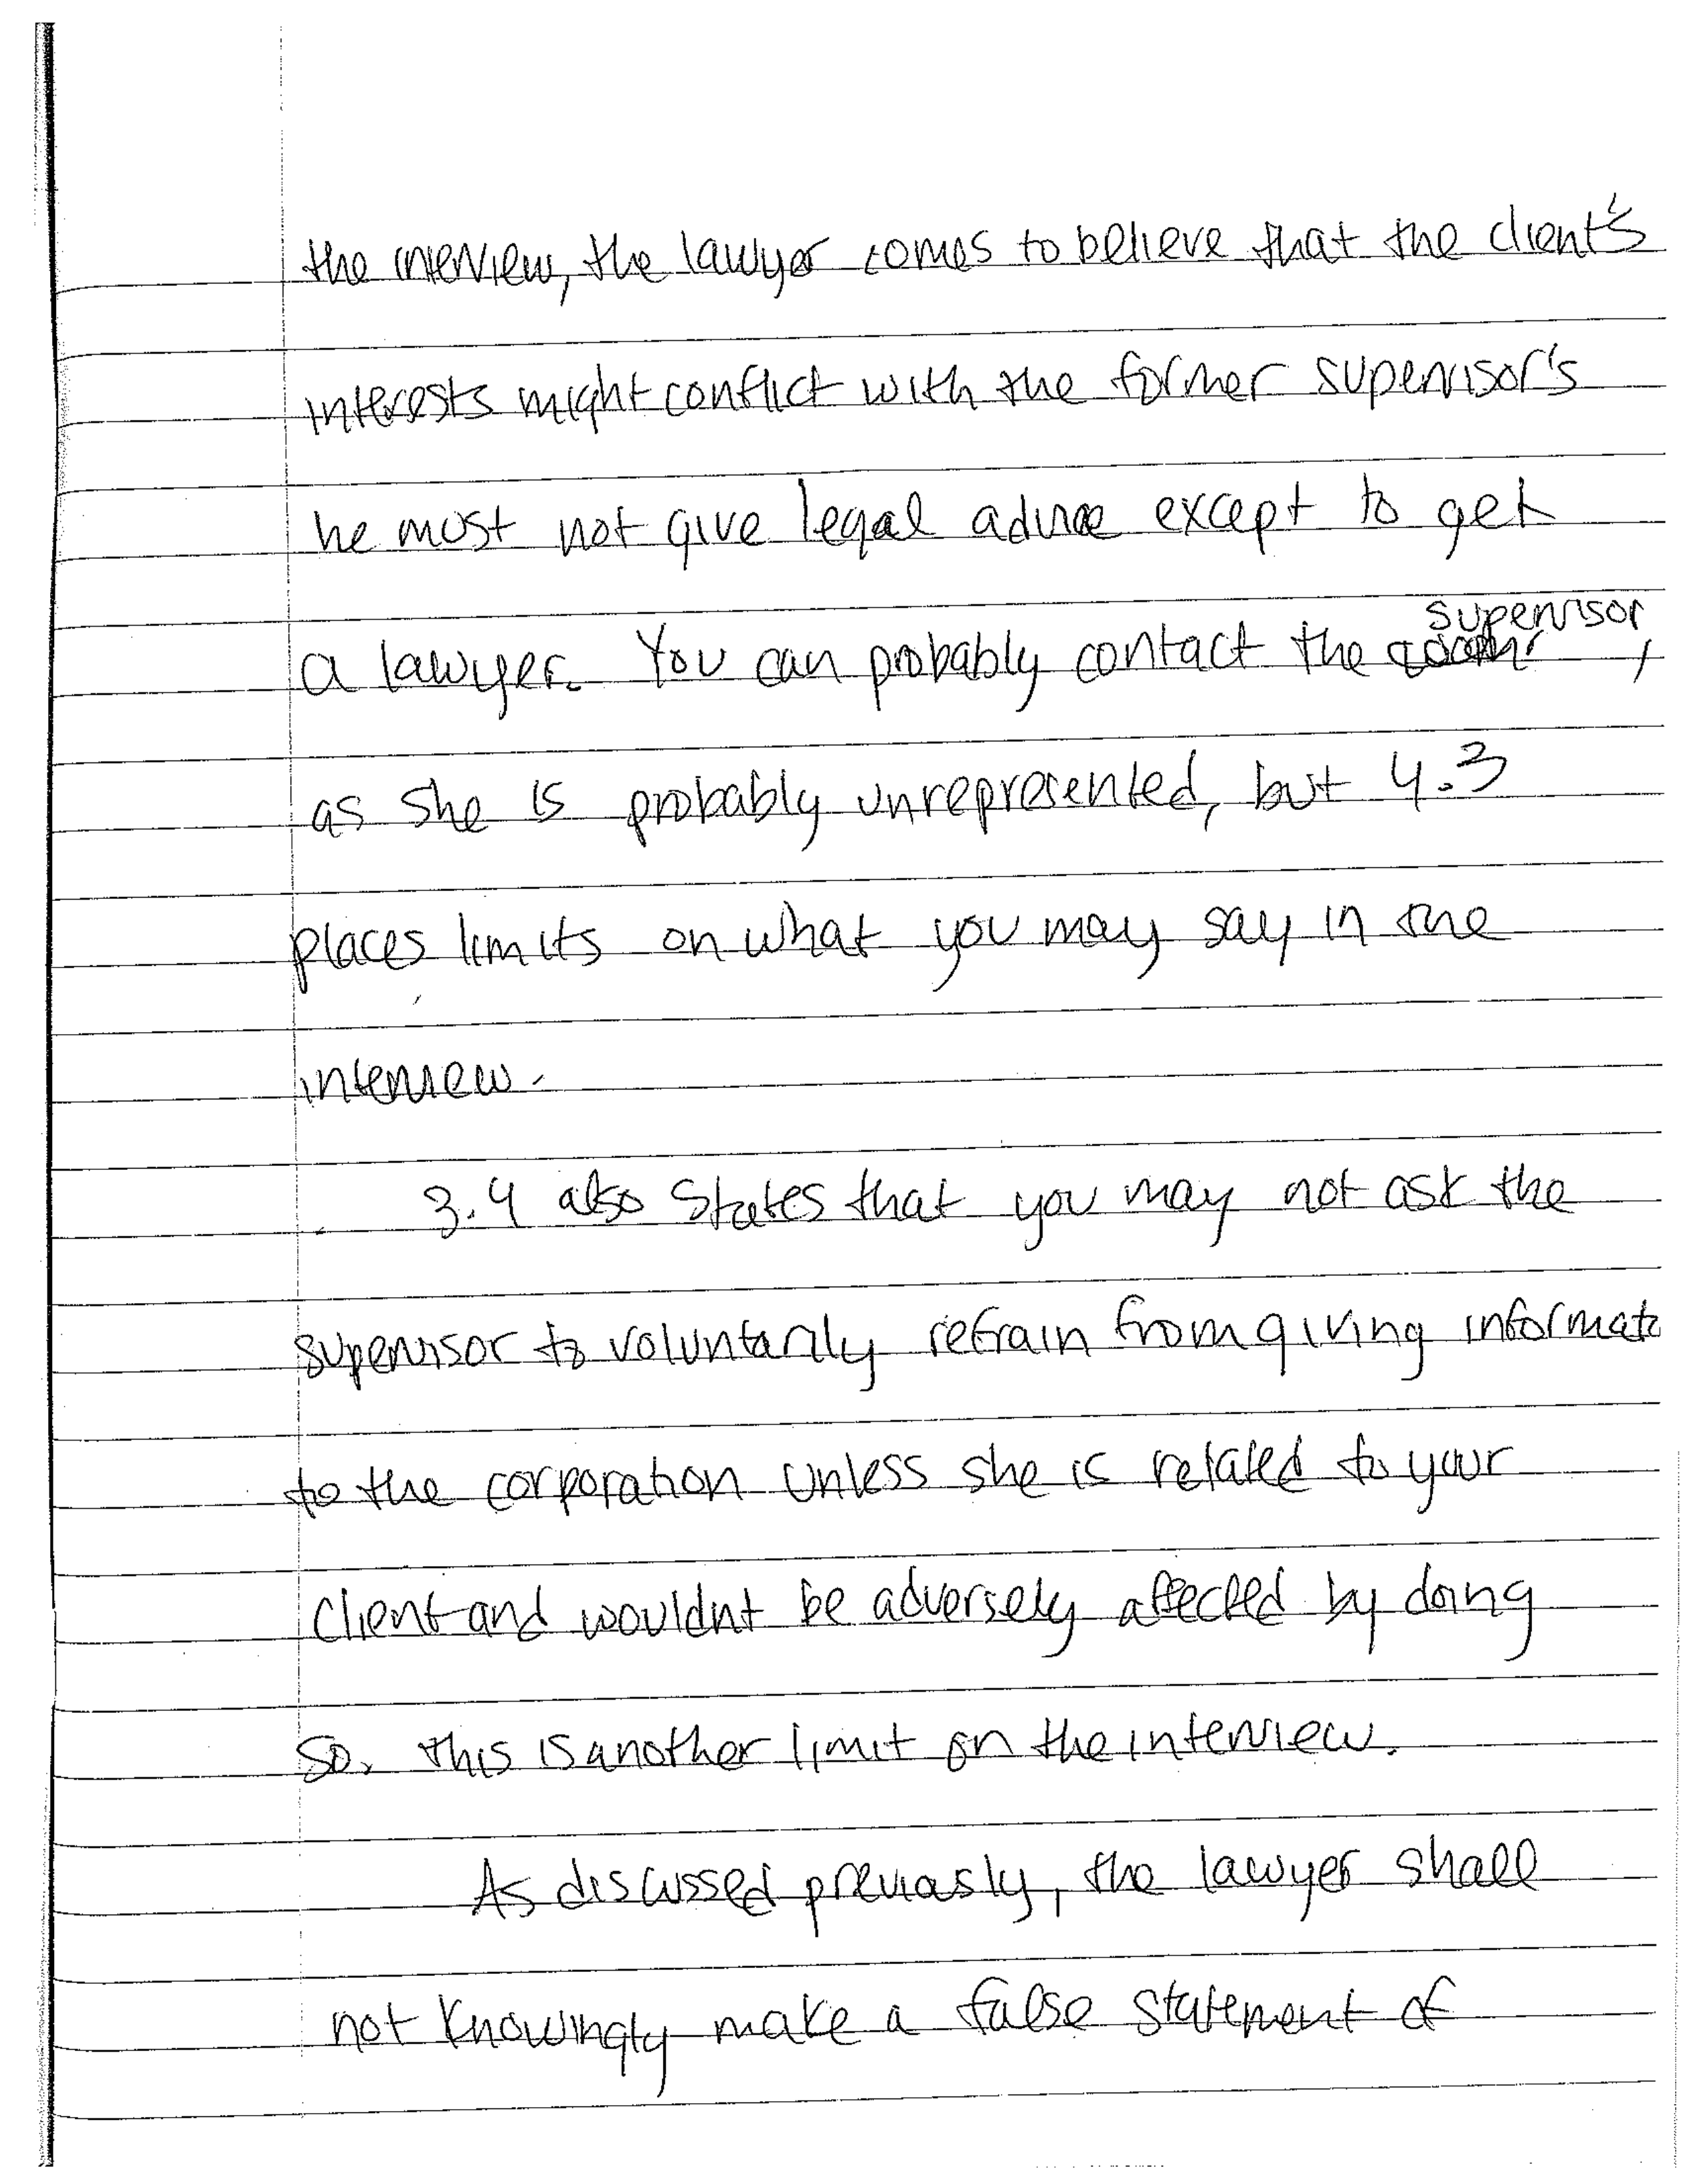 the interview, the lawyer comes to believe that the client's
interests might conflict with the former supervisor's
he must not give legal advice except to get
supervisor
a lawyer. You can probably contact the ,
as she is probably unrepresented, but 4.3
places limits on what you may say in the
interview.
3.4 also states that you may not ask the
supervisor to voluntarily refrain from giving informat
to the corporation unless she is related to your
client and wouldnt be adversely affected by doing
so. This is another limit on the interview.
As discussed previously, the lawyer shall
not knowingly make a false statement of